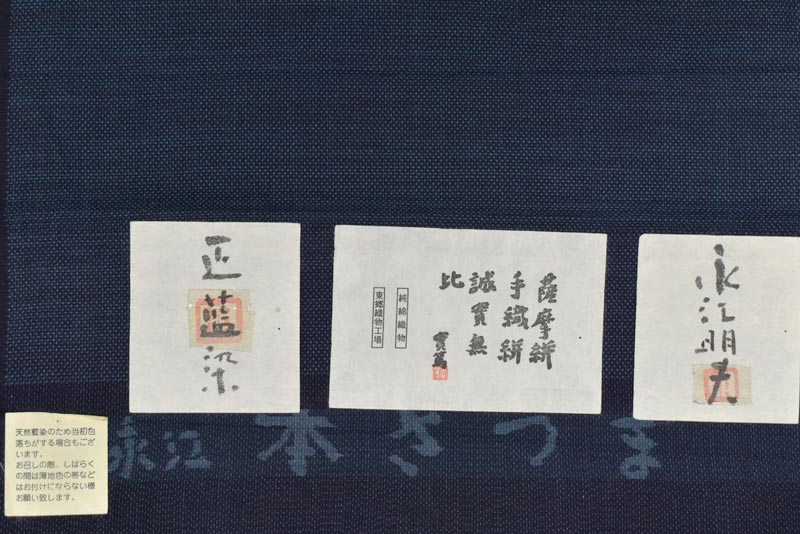 正藍染
薩摩絣
手織絣
誠實無
比
實篤
純綿織物
東郷織物工場
永江明夫
本さつま
永江
天然藍染のため当初色
落ちがする場合もござ
います。
お召しの際、しばらく
の間は薄地色の帯など
はお付けにならない様
お願い致します。